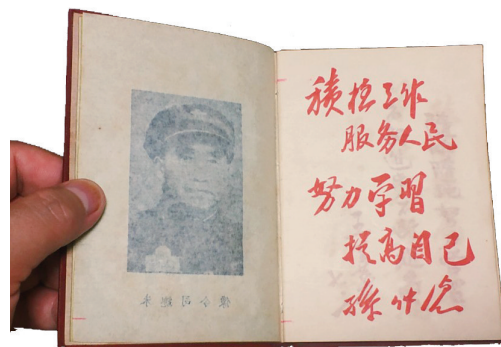 積極工作
服务人民
努力学習
提高自己
孫